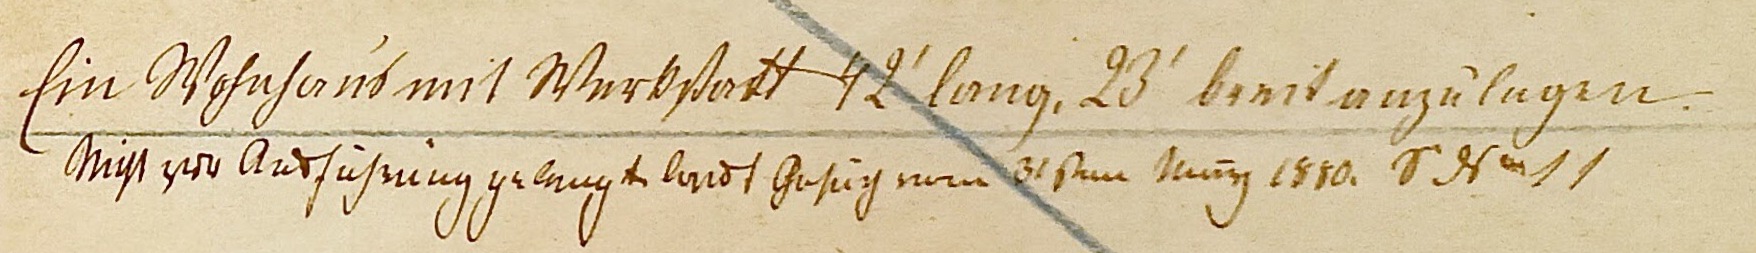 Ein Wohnhaus mit Werkstatt 42' lang, 23' breit anzulegen.
Nicht zur Ausführung gelangt laut Gesuch vom 31sten März 1880. S. No 11